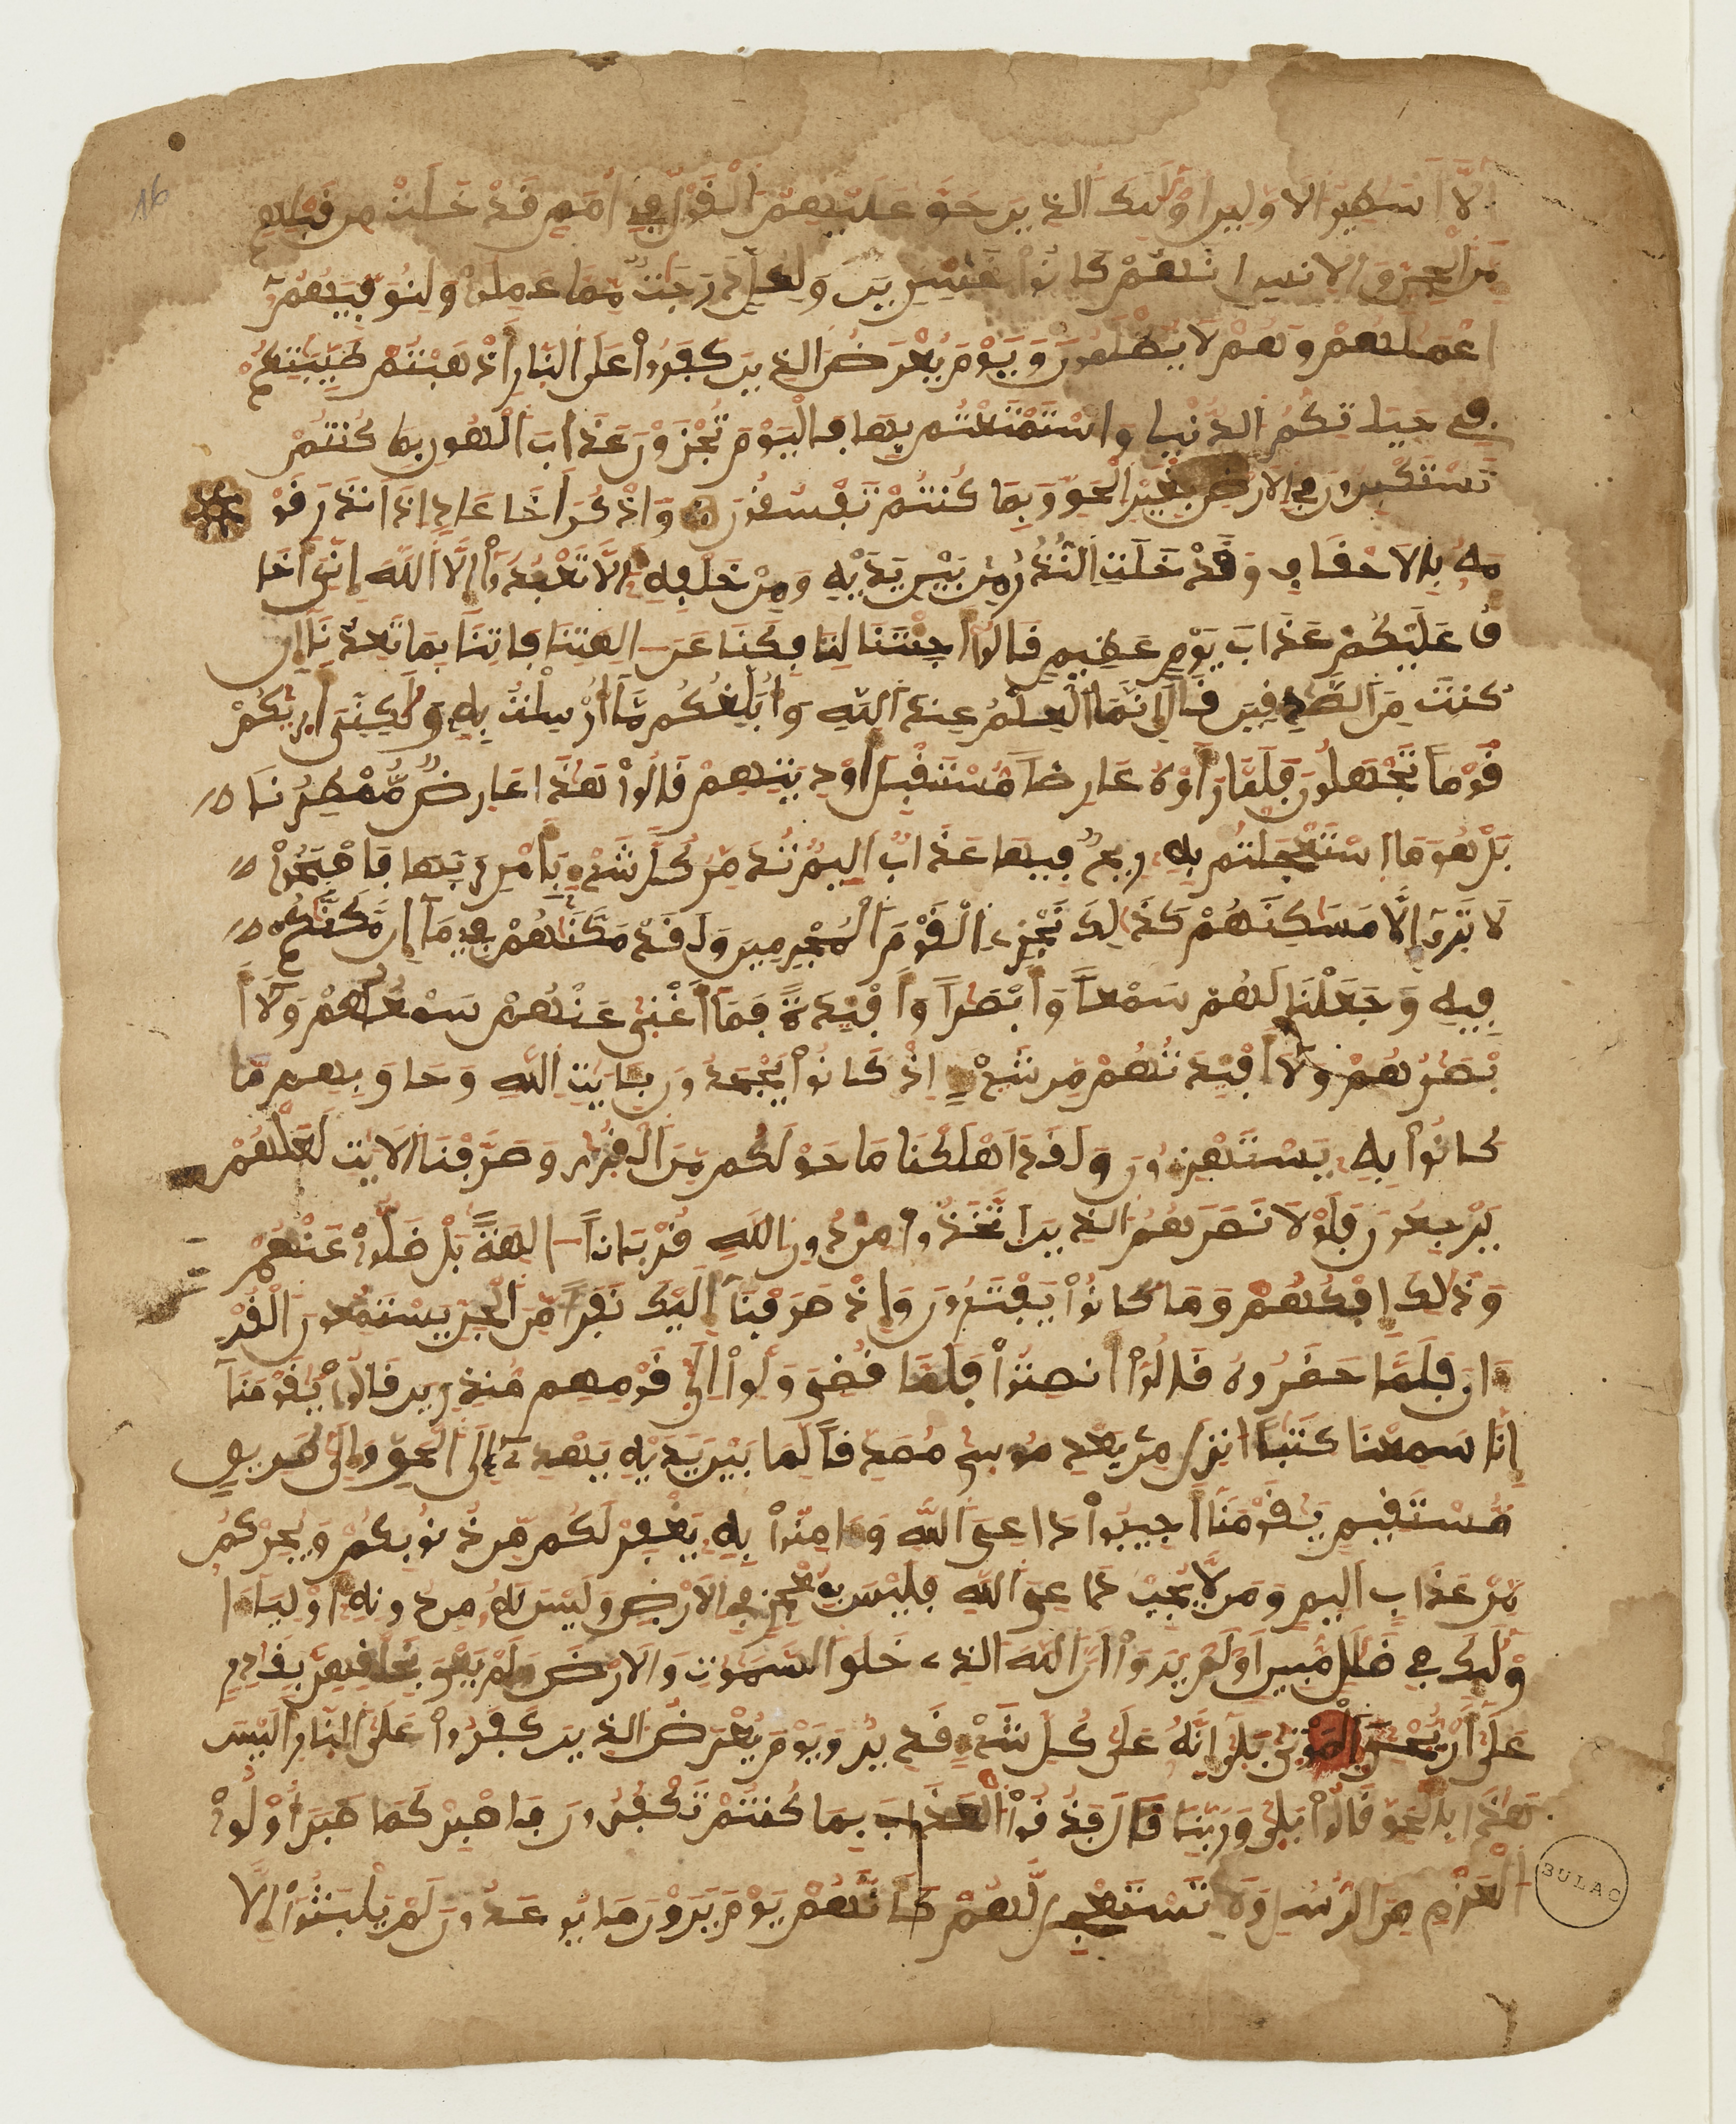 16
إلا أسطير الاولين أولئك الذين حق عليهم القول في أمم قد خلت من قبلهم
من الجن والانس انهم كانوا خسرين ولكل درجت مما عملوا ولنوفيهم
اعملهم وهم لا يظلمون ويوم يعرض الذين كفروا على النار أذهبتم طيبتكم
في حياتكم الدنيا واستمتعتم بها فاليوم تجزون عذاب الهون بما كنتم
تستكبرون في الارض بغير الحق وبما كنتم تفسقون واذكر أخا عاد إذ أنذر قو
مه بالاحقاف وقد خلت النذر من بين يديه ومن خلفه ألا تعبدوا إلا الله إني أخا
ف عليكم عذاب يوم عظيم قالوا أجئتنا لتافكنا عن الهتنا فاتنا بما تعدنا إن
كنت من الصدقين قال إنما العلم عند الله وأبلغكم ما أرسلت به ولكني أريكم
قوما تجهلون فلما رأوه عارضا مستقبل أوديتهم قالوا هذا عارض ممطرنا
بل هو ما استعجلتم به ريح فيها عذاب اليم تدمر كل شيء بأمر ربها فاصبحوا
لا ترى إلا مسكنهم كذلك نجزي القوم المجرمين ولقد مكنهم فيما إن مكنكم
فيه وجعلنا لهم سمعا وأبصرا وأفئدة فما أغنى عنهم سمعهم ولا أ
بصرهم ولا أفئدتهم من شيء إذ كانوا يجحدون بايت الله وحاق بهم ما
كانوا به يستهزءون ولقد اهلكنا ما حولكم من القرى وصرفنا الايت لعلهم
يرجعون فلولا نصرهم الذين اتخذوا من دون الله قربانا الهة بل ضلوا عنهم
وذلك إفكهم وما كانوا يفترون وإذ صرفنا إليك نفرا من الجن يستمعون القر
ءان فلما حضروه قالوا أنصتوا فلما قضي ولوا إلى قومهم منذرين قالوا يقومنا
إنا سمعنا كتبا انزل من بعد موسى مصدقا لما بين يديه يهدي إلى الحق وإلى طريق
مستقيم يقومنا أجيبوا داعي الله وءامنوا به يغفر لكم من ذنوبكم ويجركم
من عذاب اليم ومن لا يجب داعي الله فليس بمعجز في الارض وليس له من دونه أولياء ا
ولئك في ضلل مبين أولم يروا أن الله الذي خلق السموت والارض ولم يعي بخلقهن بقدر
على أن يحيي الموتى بلى إنه على كل شيء قدير ويوم يعرض الذين كفروا على النار أليس
هذا بالحق قالوا بلى وربنا قال فذوقوا العذاب بما كنتم تكفرون فاصبر كما صبر أولوا
العزم من الرسل ولا تستعجل لهم كأنهم يوم يرون ما يوعدون لم يلبثوا إلا
BULAC